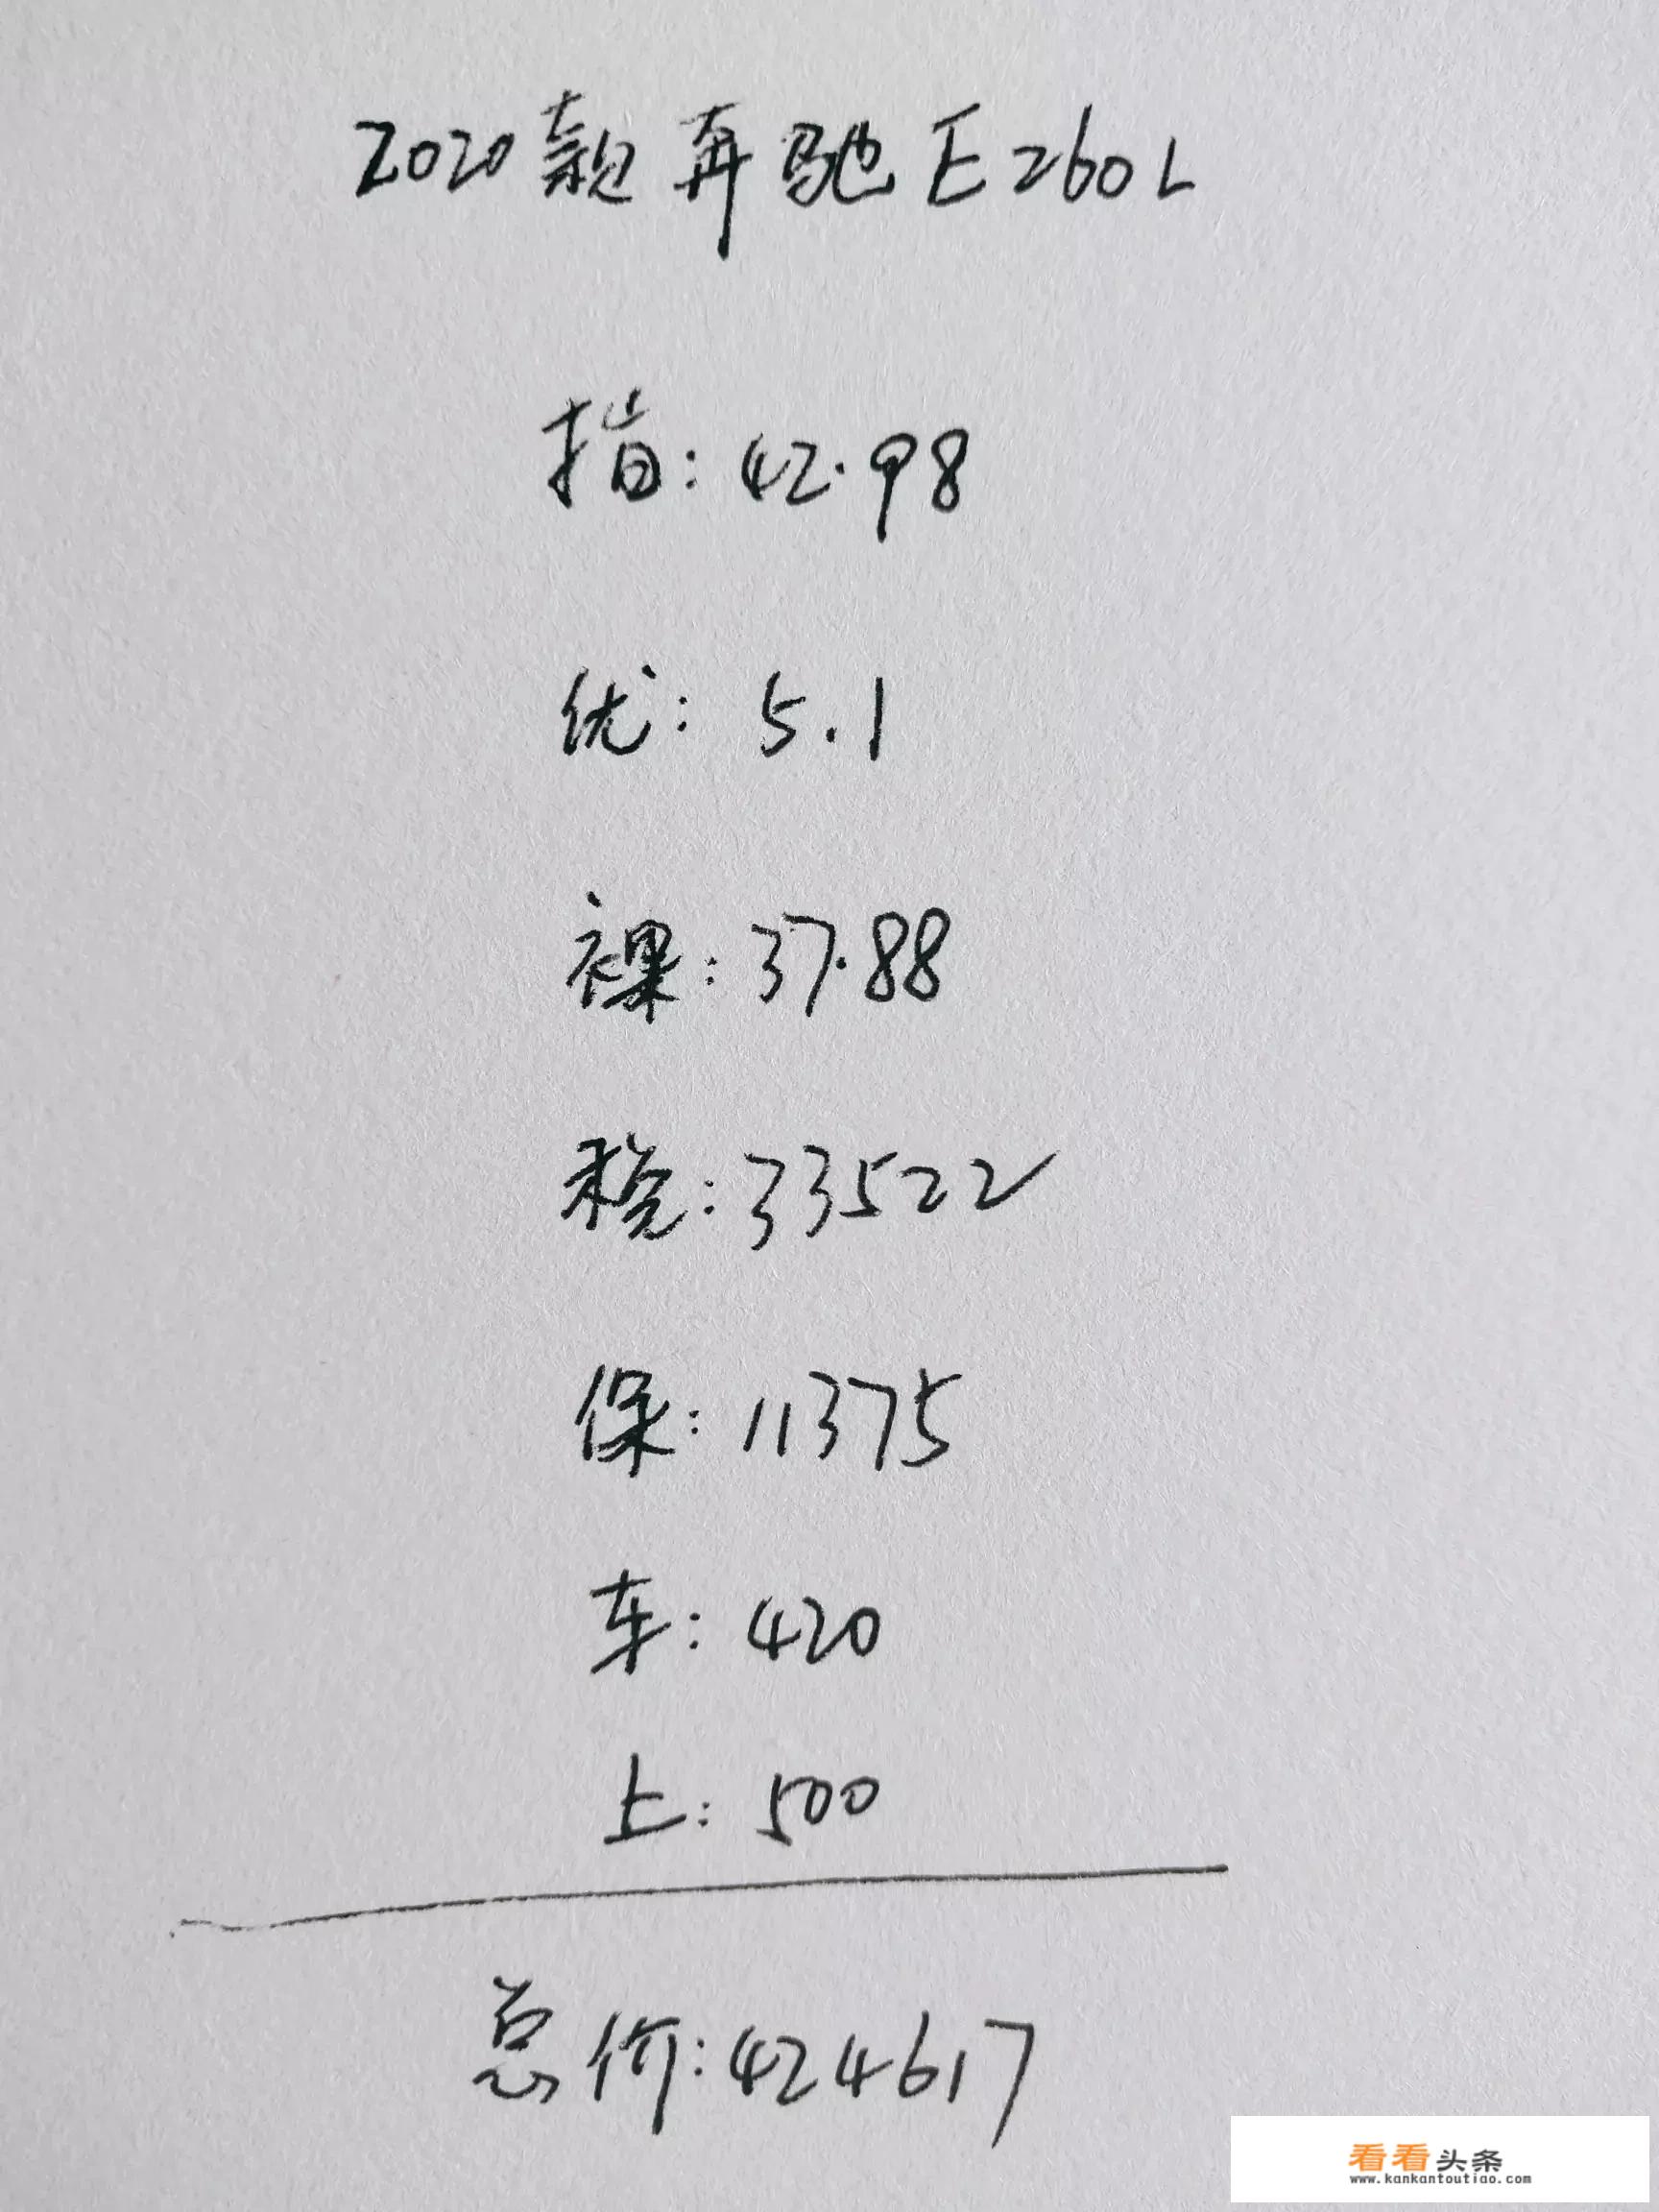 2020款奔驰E260L
指:42.98
优:5.1
裸:37.88
税:33522
保:11375
车:420
上:500
总价:424617
看看头条
www.kankantoutiao.com